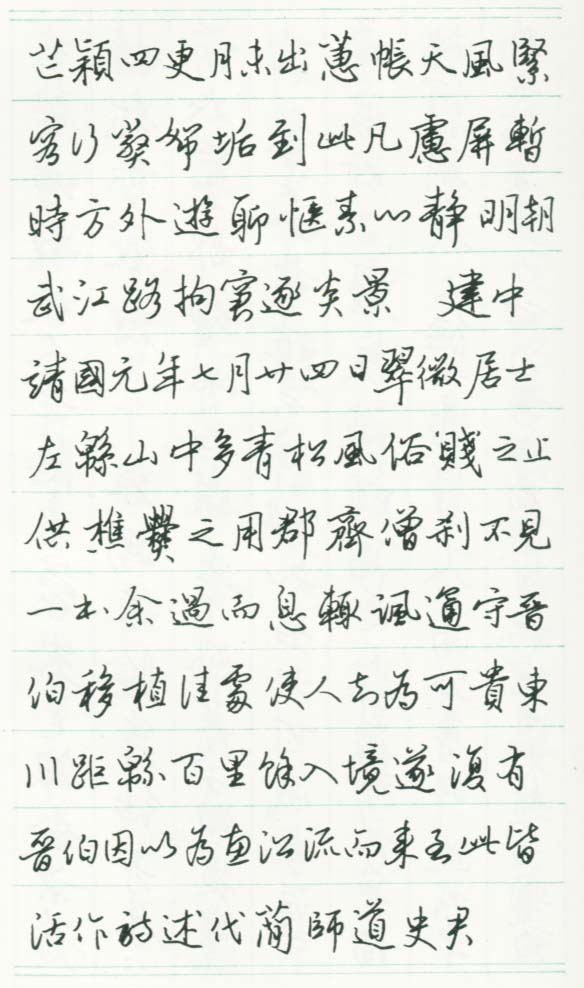 芒穎四更月未出蕙帳天風緊
客行垢到此凡慮屏暫
時方外遊聊愜素心靜明朝
武江路拘窘逐炎景 建中
靖國元年七月廿四日翠微居士
左綿山中多青松風俗賤之止
供樵爨之用郡齋僧刹不見
一本余過而息輒諷通守晉
伯移植佳處使人知為可貴東
川距綿百里餘入境遂復有
晉伯因以為惠沿流而來至此皆
活作詩述代簡師道史君